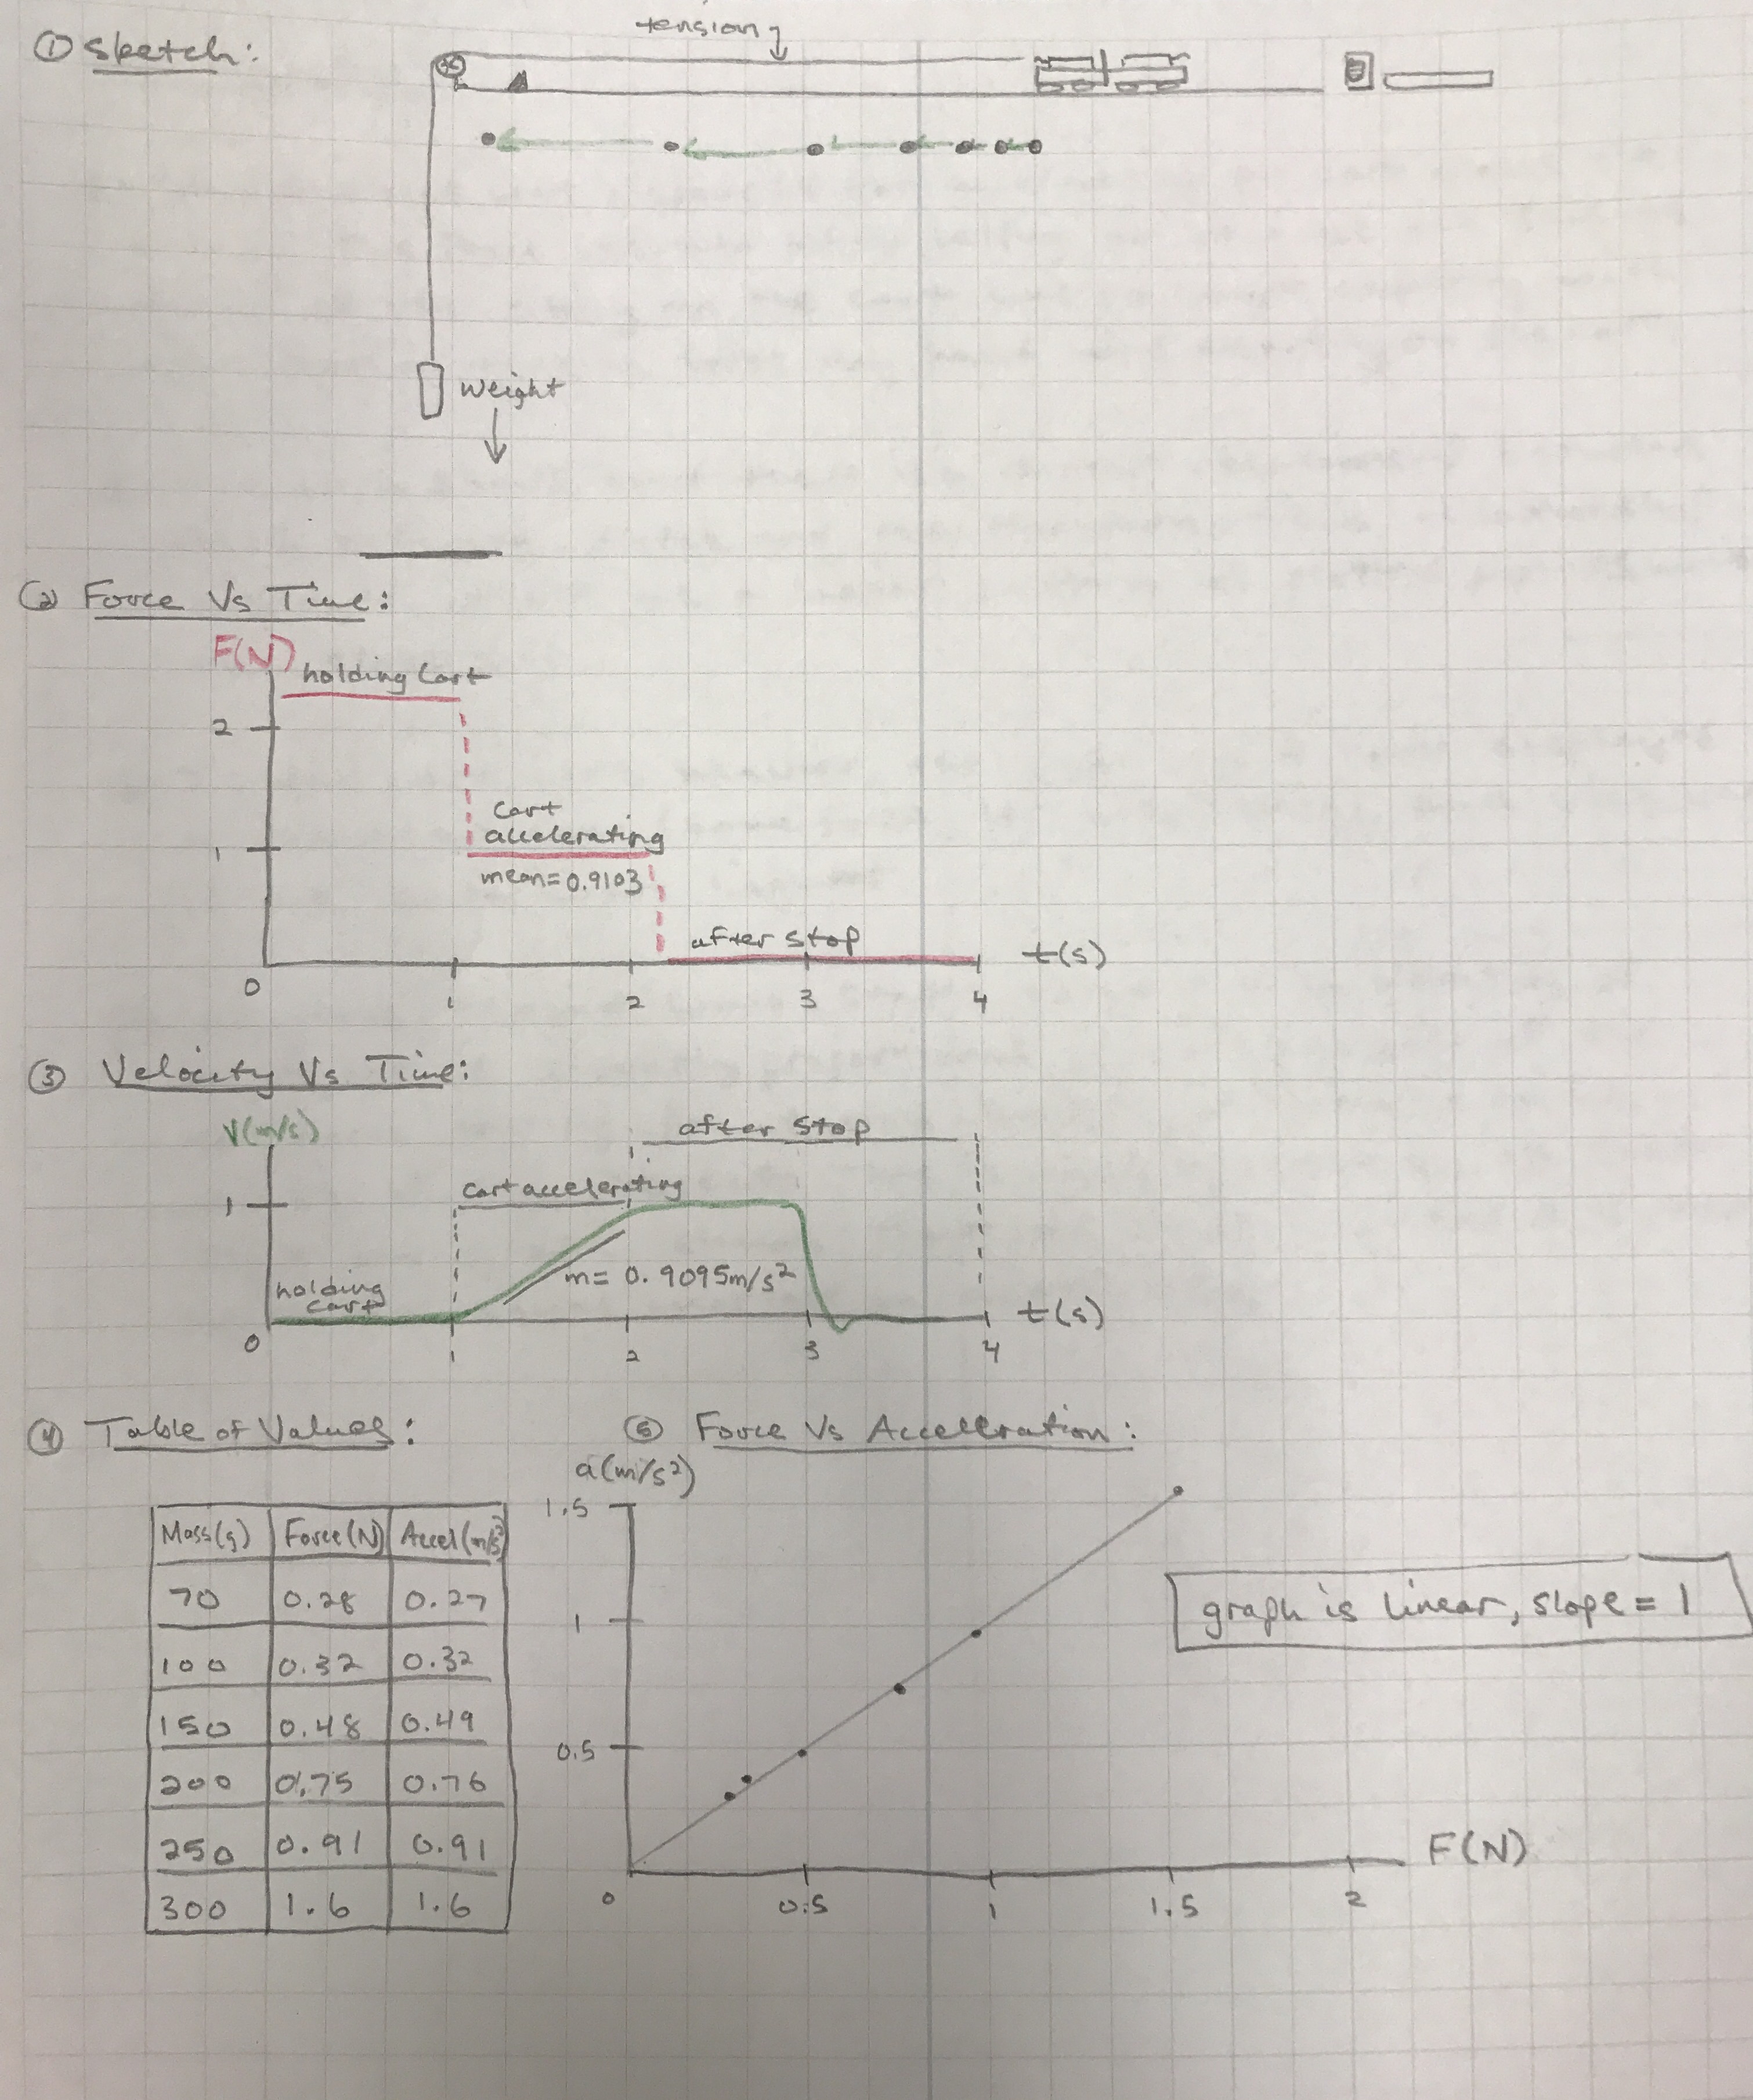 ① Sketch:
tension
Weight
② Force Vs Time:
F(N)
holding Cart
2
Cart
accelerating
1
mean=0.9103
after stop
t(s)
0
1
2
3
4
③ Velocity Vs Time:
V(m/s)
after Stop
Cart accelerating
1
m= 0.9095m/s²
holding
Cart
t(s)
0
1
2
3
4
④ Table of Values:
Mass(g) Force(N) Accel(m/s²)
70 0.28 0.27
100 0.32 0.32
150 0.48 0.49
200 0.75 0.76
250 0.91 0.91
300 1.6 1.6
⑤ Force Vs Accelleration:
a(m/s²)
1.5
1
graph is linear, slope = 1
0.5
F(N)
0
0.5
1
1.5
2